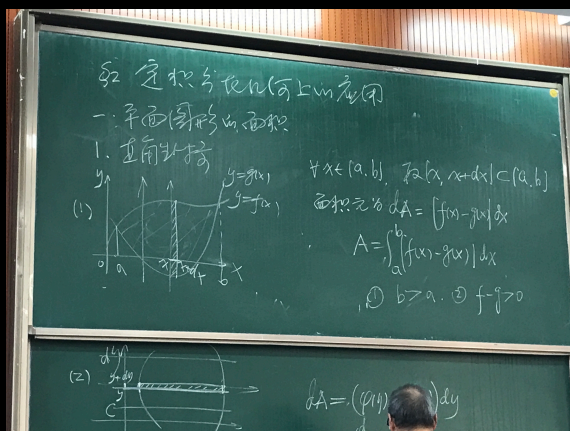 §2 定积分在几何上的应用
一. 平面图形的面积
1. 直角坐标
(1)
y
y=g(x)
y=f(x)
0 a x x+dx b x
∀x∈[a,b], 取[x, x+dx]⊂[a,b]
面积元为 dA=[f(x)-g(x)]dx
A=∫ₐᵇ[f(x)-g(x)]dx
① b>a. ② f-g>0
(2)
d
y+dy
y
C
dA=(φ(y) )dy